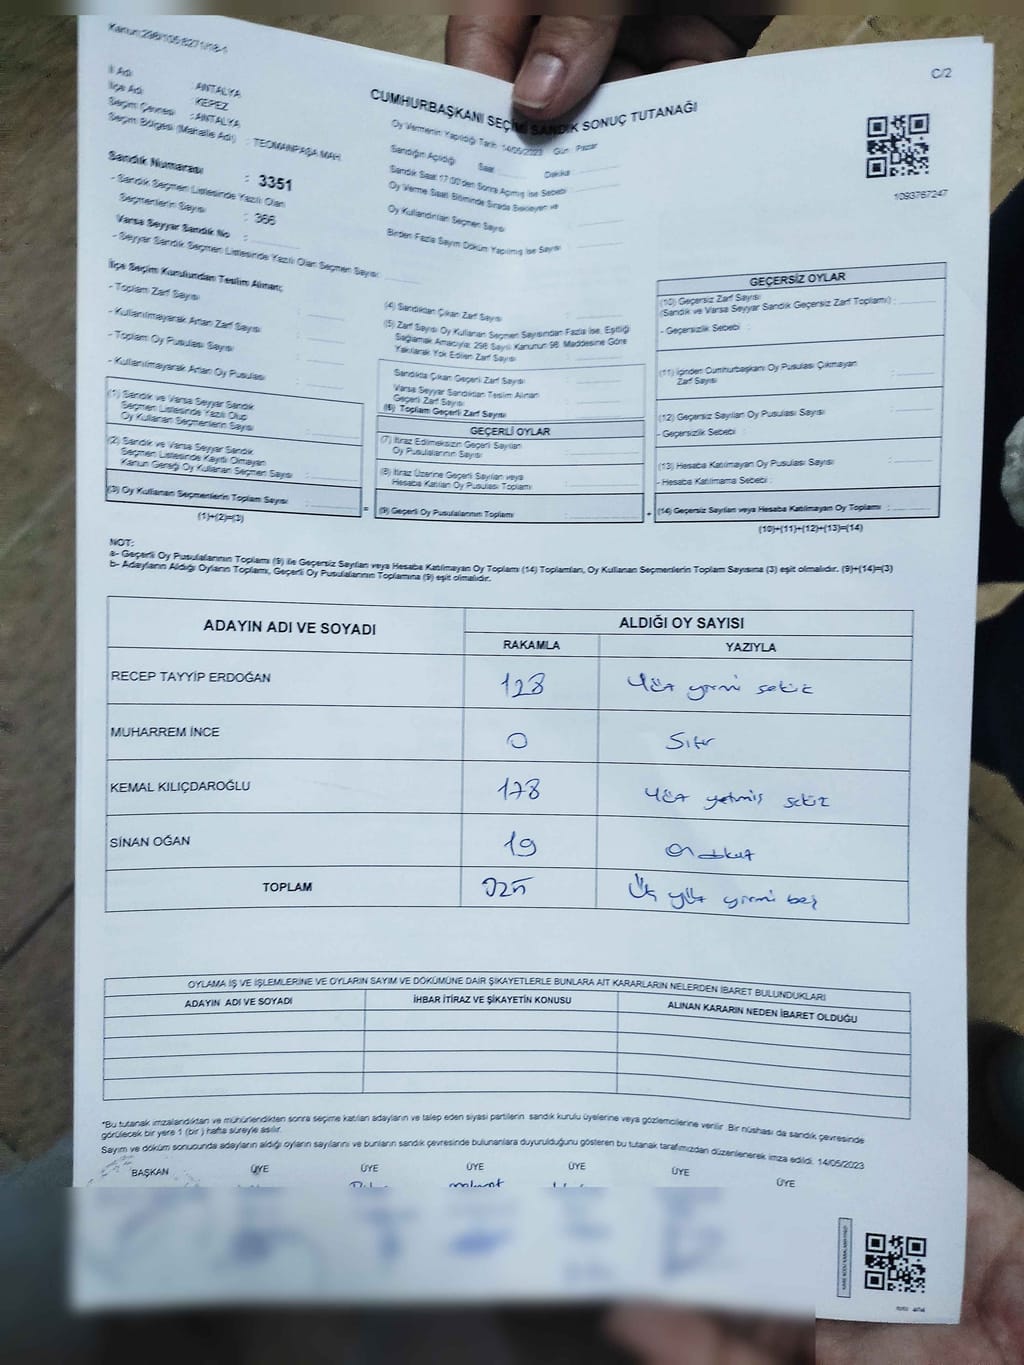 Kanun:298/105:8271/18-1
C/2
İl Adı : ANTALYA
İlçe Adı : KEPEZ
Seçim Çevresi : ANTALYA
Seçim Bölgesi (Mahalle Adı) : TEOMANPAŞA MAH.
Sandık Numarası : 3351
- Sandık Seçmen Listesinde Yazılı Olan
Seçmenlerin Sayısı : 366
Varsa Seyyar Sandık No :
- Seyyar Sandık Seçmen Listesinde Yazılı Olan Seçmen Sayısı:
CUMHURBAŞKANI SEÇİMİ SANDIK SONUÇ TUTANAĞI
Oy Vermenin Yapıldığı Tarih: 14/05/2023 Gün : Pazar
Sandığın Açıldığı Saat Dakika
Sandık Saat 17:00'den Sonra Açılmış İse Sebebi
Oy Verme Saati Bitiminde Sırada Bekleyen ve
Oy Kullandırılan Seçmen Sayısı :
Birden Fazla Sayım Döküm Yapılmış İse Sayısı :
1093767247
İlçe Seçim Kurulundan Teslim Alınan;
- Toplam Zarf Sayısı :
- Kullanılmayarak Artan Zarf Sayısı :
- Toplam Oy Pusulası Sayısı :
- Kullanılmayarak Artan Oy Pusulası :
(1) Sandık ve Varsa Seyyar Sandık
Seçmen Listesinde Yazılı Olup
Oy Kullanan Seçmenlerin Sayısı :
(2) Sandık ve Varsa Seyyar Sandık
Seçmen Listesinde Kayıtlı Olmayan
Kanun Gereği Oy Kullanan Seçmen Sayısı :
(3) Oy Kullanan Seçmenlerin Toplam Sayısı :
(1)+(2)=(3)
(4) Sandıktan Çıkan Zarf Sayısı :
(5) Zarf Sayısı Oy Kullanan Seçmen Sayısından Fazla İse, Eşitliği
Sağlamak Amacıyla; 298 Sayılı Kanunun 98. Maddesine Göre
Yakılarak Yok Edilen Zarf Sayısı :
Sandıkta Çıkan Geçerli Zarf Sayısı :
Varsa Seyyar Sandıktan Teslim Alınan
Geçerli Zarf Sayısı :
(6) Toplam Geçerli Zarf Sayısı :
GEÇERLİ OYLAR
(7) İtiraz Edilmeksizin Geçerli Sayılan
Oy Pusulalarının Sayısı :
(8) İtiraz Üzerine Geçerli Sayılan veya
Hesaba Katılan Oy Pusulası Toplamı :
= (9) Geçerli Oy Pusulalarının Toplamı : +
GEÇERSİZ OYLAR
(10) Geçersiz Zarf Sayısı
(Sandık ve Varsa Seyyar Sandık Geçersiz Zarf Toplamı) :
- Geçersizlik Sebebi :
(11) İçinden Cumhurbaşkanı Oy Pusulası Çıkmayan
Zarf Sayısı :
(12) Geçersiz Sayılan Oy Pusulası Sayısı :
- Geçersizlik Sebebi :
(13) Hesaba Katılmayan Oy Pusulası Sayısı :
- Hesaba Katılmama Sebebi :
(14) Geçersiz Sayılan veya Hesaba Katılmayan Oy Toplamı :
(10)+(11)+(12)+(13)=(14)
NOT:
a- Geçerli Oy Pusulalarının Toplamı (9) ile Geçersiz Sayılan veya Hesaba Katılmayan Oy Toplamı (14) Toplamları, Oy Kullanan Seçmenlerin Toplam Sayısına (3) eşit olmalıdır. (9)+(14)=(3)
b- Adayların Aldığı Oyların Toplamı, Geçerli Oy Pusulalarının Toplamına (9) eşit olmalıdır.
ADAYIN ADI VE SOYADI ALDIĞI OY SAYISI
RAKAMLA YAZIYLA
RECEP TAYYİP ERDOĞAN 128 Yüz yirmi sekiz
MUHARREM İNCE 0 Sıfır
KEMAL KILIÇDAROĞLU 178 Yüz yetmiş sekiz
SİNAN OĞAN 19 On dokuz
TOPLAM 325 Üç yüz yirmi beş
OYLAMA İŞ VE İŞLEMLERİNE VE OYLARIN SAYIM VE DÖKÜMÜNE DAİR ŞİKAYETLERLE BUNLARA AİT KARARLARIN NELERDEN İBARET BULUNDUKLARI
ADAYIN ADI VE SOYADI İHBAR İTİRAZ VE ŞİKAYETİN KONUSU ALINAN KARARIN NEDEN İBARET OLDUĞU
*Bu tutanak imzalandıktan ve mühürlendikten sonra seçime katılan adayların ve talep eden siyasi partilerin sandık kurulu üyelerine veya gözlemcilerine verilir. Bir nüshası da sandık çevresinde
görülecek bir yere 1 (bir ) hafta süreyle asılır.
Sayım ve döküm sonucunda adayların aldığı oyların sayılarını ve bunların sandık çevresinde bulunanlara duyurulduğunu gösteren bu tutanak tarafımızdan düzenlenerek imza edildi. 14/05/2023
BAŞKAN ÜYE ÜYE ÜYE ÜYE ÜYE ÜYE